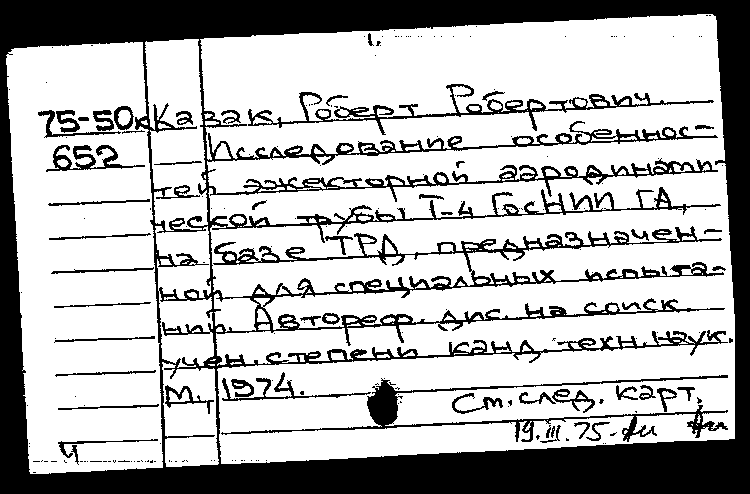 75-50к Казак, Роберт Робертович.
652 Исследование особеннос-
тей эжекторной аэродинами-
ческой трубы Т-4 ГосНИИ ГА,
на базе ТРД, предназначен-
ной для специальных испыта-
ний. Автореф. дис. на соиск.
учен. степени канд. техн. наук.
М., 1974.
См. след. карт.
19.III.75-
Ч